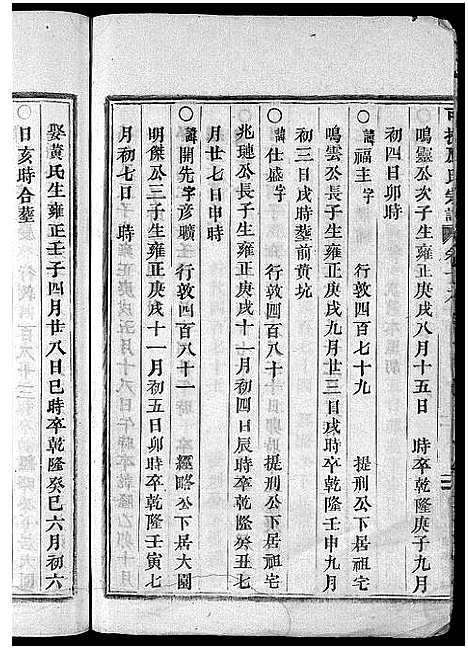 鳴靈公次子生雍正庚戌八月十五日 時卒乾隆庚子九月
初四日卯時
○諱福主字 行敦四百七十九 提刑公下居祖宅
鳴雲公長子生雍正庚戌九月廿三日戌時卒乾隆壬申九月
初三日戌時塟前黄坑
○諱仕盛字 行敦四百八十 提刑公下居祖宅
兆璉公長子生雍正庚戌十一月初四日辰時卒乾隆癸丑七
月廿七日申時
○諱開先字彦曠 行敦四百八十一 經略公下居大園
明傑公三子生雍正庚戌十一月初五日卯時卒乾隆壬寅七
月初七日 時
娶黄氏生雍正壬子四月廿八日巳時卒乾隆癸巳六月初六
日亥時合塟
○